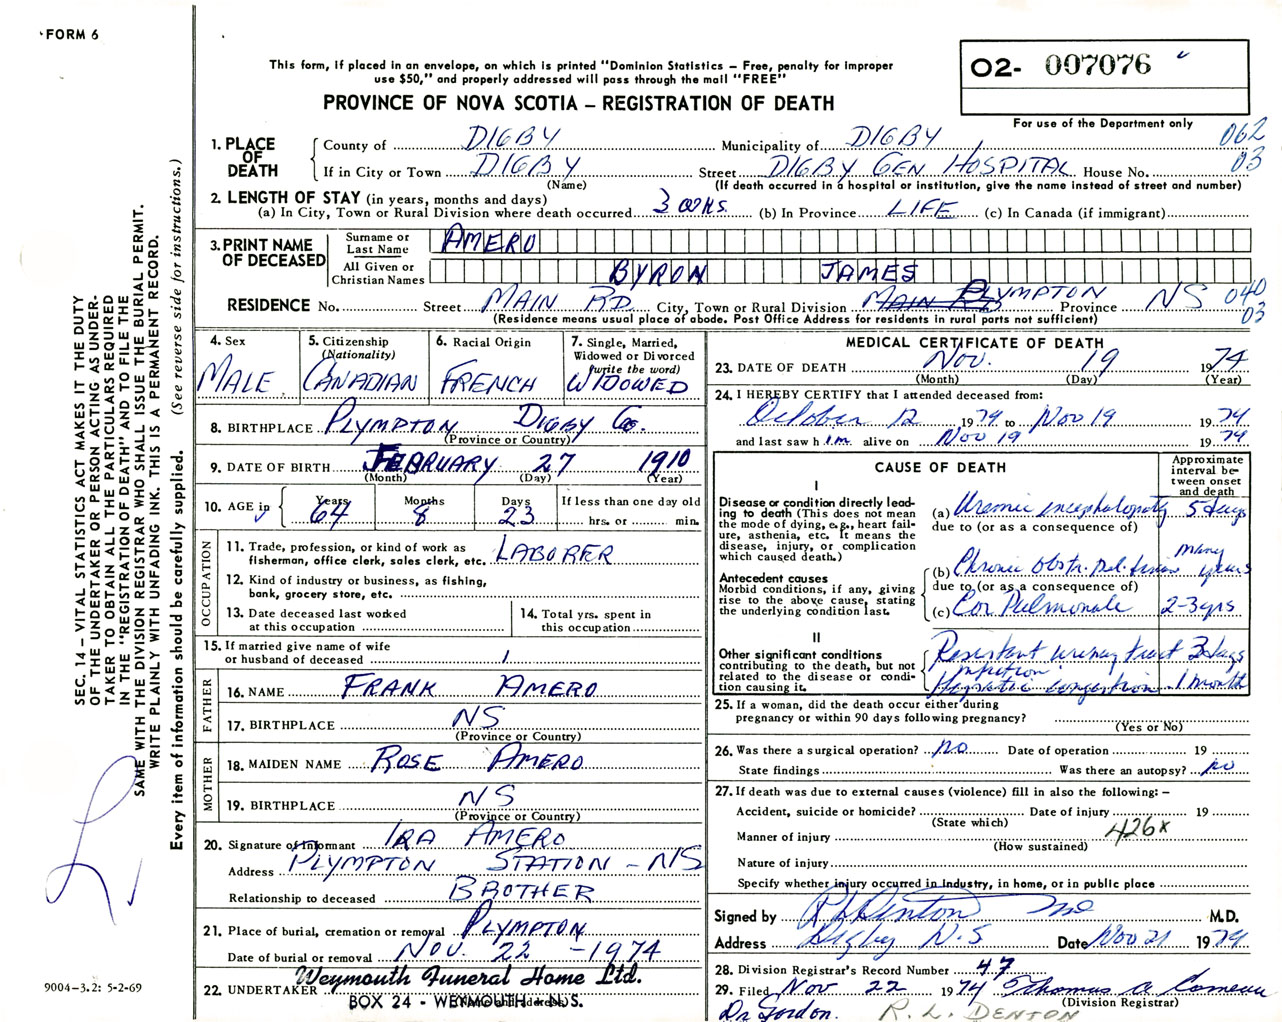 FORM 6
This form, if placed in an envelope, on which is printed "Dominion Statistics – Free, penalty for improper
use $50," and properly addressed will pass through the mail "FREE"
PROVINCE OF NOVA SCOTIA – REGISTRATION OF DEATH
O2- 007076
For use of the Department only
062
03
1. PLACE OF DEATH
County of DIGBY Municipality of DIGBY
If in City or Town DIGBY Street DIGBY GEN HOSPITAL House No.
(Name) (If death occurred in a hospital or institution, give the name instead of street and number)
2. LENGTH OF STAY (in years, months and days)
(a) In City, Town or Rural Division where death occurred 3 WKS. (b) In Province LIFE (c) In Canada (if immigrant)
3. PRINT NAME OF DECEASED
Surname or Last Name AMERO
All Given or Christian Names BYRON JAMES
RESIDENCE No. Street MAIN RD. City, Town or Rural Division MAIN RD PLYMPTON Province NS 040
(Residence means usual place of abode. Post Office Address for residents in rural parts not sufficient) 03
4. Sex MALE
5. Citizenship (Nationality) CANADIAN
6. Racial Origin FRENCH
7. Single, Married, Widowed or Divorced (write the word) WIDOWED
8. BIRTHPLACE PLYMPTON DIGBY Co.
(Province or Country)
9. DATE OF BIRTH FEBRUARY 27 1910
(Month) (Day) (Year)
10. AGE in Years 64 Months 8 Days 23 If less than one day old
hrs. or min.
OCCUPATION
11. Trade, profession, or kind of work as
fisherman, office clerk, sales clerk, etc. LABORER
12. Kind of industry or business, as fishing,
bank, grocery store, etc.
13. Date deceased last worked
at this occupation
14. Total yrs. spent in
this occupation
15. If married give name of wife
or husband of deceased
FATHER
16. NAME FRANK AMERO
17. BIRTHPLACE NS
(Province or Country)
MOTHER
18. MAIDEN NAME ROSE AMERO
19. BIRTHPLACE NS
(Province or Country)
20. Signature of Informant IRA AMERO
Address PLYMPTON STATION - N/S
Relationship to deceased BROTHER
21. Place of burial, cremation or removal PLYMPTON
Date of burial or removal NOV. 22 - 1974
22. UNDERTAKER Weymouth Funeral Home Ltd.
BOX 24 - WEYMOUTH - N.S.
MEDICAL CERTIFICATE OF DEATH
23. DATE OF DEATH Nov. 19 1974
(Month) (Day) (Year)
24. I HEREBY CERTIFY that I attended deceased from:
October 12 1974 to Nov 19 1974
and last saw h im alive on Nov 19 1974
CAUSE OF DEATH
Approximate interval between onset and death
I
Disease or condition directly leading to death (This does not mean the mode of dying, e.g., heart failure, asthenia, etc. It means the disease, injury, or complication which caused death.)
(a) Uremic encephalopathy 5 days
due to (or as a consequence of)
Antecedent causes
Morbid conditions, if any, giving rise to the above cause, stating the underlying condition last.
(b) Chronic Obstr. Pul. disease many years
due to (or as a consequence of)
(c) Cor Pulmonale 2-3 yrs
II
Other significant conditions
contributing to the death, but not related to the disease or condition causing it.
Resistant urinary tract infection 3 days
Hepatic congestion 1 month
25. If a woman, did the death occur either during
pregnancy or within 90 days following pregnancy?
(Yes or No)
26. Was there a surgical operation? no Date of operation 19
State findings Was there an autopsy? no
27. If death was due to external causes (violence) fill in also the following: –
Accident, suicide or homicide? Date of injury 19
(State which) 426x
Manner of injury
(How sustained)
Nature of injury
Specify whether injury occurred in Industry, in home, or in public place
Signed by R L Denton MD M.D.
Address Digby N.S Date Nov 21 1974
28. Division Registrar's Record Number 47
29. Filed Nov 22 1974 Thomas A Comeau
(Division Registrar)
Dr Gordon. R. L. DENTON
SEC. 14 – VITAL STATISTICS ACT MAKES IT THE DUTY
OF THE UNDERTAKER OR PERSON ACTING AS UNDER-
TAKER TO OBTAIN ALL THE PARTICULARS REQUIRED
IN THE "REGISTRATION OF DEATH" AND TO FILE THE
SAME WITH THE DIVISION REGISTRAR WHO SHALL ISSUE THE BURIAL PERMIT.
WRITE PLAINLY WITH UNFADING INK. THIS IS A PERMANENT RECORD.
Every item of information should be carefully supplied. (See reverse side for instructions.)
9004-3.2: 5-2-69